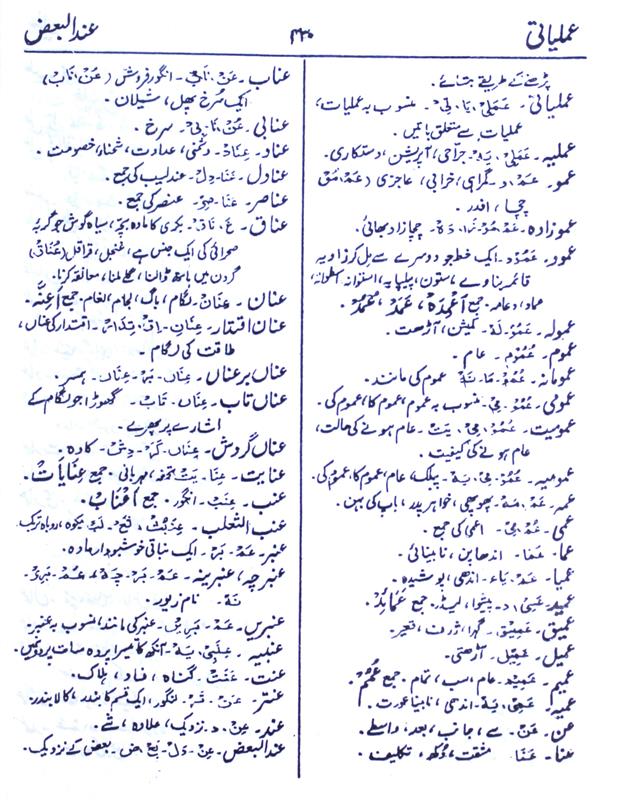 عملیاتی
۴۳۰
عندالبعض
پڑھنے کے طریقے بتائے۔
عملیاتی۔ عَمَلِیْ، یَا، تِیْ۔ منسوب بہ عملیات،
عملیات سے متعلق باتیں۔
عملیہ۔ عَمَلِیْ، یَہْ۔ جراحی، آپریشن، دستکاری۔
عمو۔ عَمْ، و۔ گمراہی، خرابی، عاجزی (عَمْ، مُوْ)
چچا، افدر۔
عموزادہ۔ عَمْ، مُوْ، زَا، دَہْ۔ چچازاد بھائی۔
عمود۔ عَمُوْد۔ ایک خط جو دوسرے سے مل کر زاویہ
قائمہ بناوے، ستون، پیلپایہ، استوانہ اسطوانہ،
عماد، دعامہ۔ جمع اَعْمِدَۃ، عَمَد، عُمُد۔
عمولہ۔ عَمُوْ، لَہْ۔ کمیشن، آڑھت۔
عموم۔ عُمُوْم۔ عام۔
عمومانہ۔ عُمُوْ، مَا، نَہْ۔ عموم کی مانند۔
عمومی۔ عُمُوْ، مِیْ۔ منسوب بہ عموم، عموم کا، عموم کی۔
عمومیت۔ عُمُوْ، مِیْ، یَتْ۔ عام ہونے کی حالت،
عام ہونے کی کیفیت۔
عمومیہ۔ عُمُوْ، مِیْ، یَہْ۔ پبلک، عام، عموم کا، عموم کی۔
عمہ۔ عَمْ، مَہْ۔ پھوپھی، خواہر پدر، باپ کی بہن۔
عمی۔ عُمْ، یْ۔ اعمی کی جمع۔
عما۔ عَمَا۔ اندھاپن، نابینائی۔
عمیا۔ عَمْ، یَاء۔ اندھی، پوشیدہ۔
عمید۔ عَمِیْ، د۔ پیشوا، لیڈر۔ جمع عَمَائِدْ۔
عمیق۔ عَمِیْق۔ گہرا، ژرف، قعیر۔
عمیل۔ عَمِیْل۔ آڑھتی۔
عمیم۔ عَمِیْم۔ عام، سب، تمام۔ جمع عُمُمْ۔
عمیہ۔ عَمِیْ، یَہْ۔ اندھی، نابینا عورت۔
عن۔ عَنْ۔ سے، جانب، بعد، واسطے۔
عنا۔ عَنَا۔ مشقت، دُکھ، تکلیف۔
عناب۔ عَنْ، نَاب۔ انگور فروش (عُنْ، نَاب)
ایک سُرخ پھل، شیلان۔
عنابی۔ عُنْ، نَا، بِیْ۔ سرخ۔
عناد۔ عِنَاد۔ دشمنی، عداوت، شحناء، خصومت۔
عنادل۔ عَنَا، دِل۔ عندلیب کی جمع۔
عناصر۔ عَنَا، صِر۔ عنصر کی جمع۔
عناق۔ عَ، نَاق۔ بکری کا مادہ بچہ، سیاہ گوش جو گربہ
صحرائی کی ایک جنس ہے، غنجل، قراقل (عُنَاق)
گردن میں ہاتھ ڈالنا، گلے ملنا، معانقہ کرنا۔
عنان۔ عِنَان۔ لگام، باگ، لجام، لغام۔ جمع اَعِنَّہ۔
عنان اقتدار۔ عِنَانِ، اِقْ، تِدَار۔ اقتدار کی عناں،
طاقت کی لگام۔
عناں برعناں۔ عِنَاں، بَرْ، عِنَاں۔ ہمسر۔
عناں تاب۔ عِنَاں، تَاب۔ گھوڑا جو لگام کے
اشارے پر پھرے۔
عناں گردش۔ عِنَاں، گَرْ، دِش۔ کادہ۔
عنایت۔ عِنَا، یَتْ۔ تحفہ، مہربانی۔ جمع عِنَایَاتْ۔
عنب۔ عِنَبْ۔ انگور۔ جمع اَعْنَابْ۔
عنب الثعلب۔ عِنَبُثْ، ثَعْ، لَبْ۔ مکوہ، روباہ تربک۔
عنبر۔ عَمْ، بَرْ۔ ایک نباتی خوشبودار مادہ۔
عنبرچہ، عنبرینہ۔ عَمْ، بَرْ، چَہْ، عَمْ، بَرِیْ،
نَہْ۔ نام زیور۔
عنبریں۔ عَمْ، بَرِیْں۔ عنبر کی مانند، منسوب بہ عنبر۔
عنبیہ۔ عِنَبِیْ، یَہْ۔ آنکھ کا تیسرا پردہ سات پردوں میں۔
عنت۔ عَنَتْ۔ گناہ، فساد، ہلاک۔
عنتر۔ عَنْ، تَرْ۔ لنگور، ایک قسم کا بندر، کالا بندر۔
عند۔ عِنْ، د۔ نزدیک، علاوہ، شے۔
عندالبعض۔ عِنْ، دَلْ، بَعْ، ض۔ بعض کے نزدیک۔